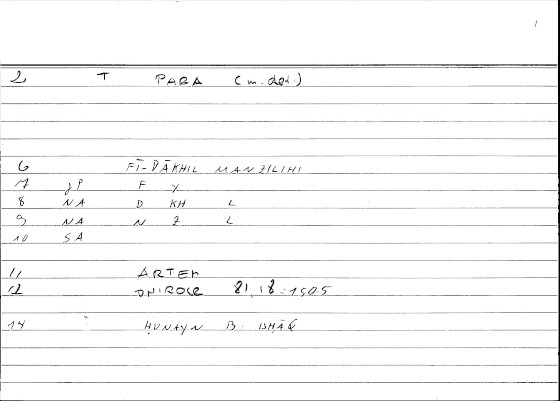 1
2 T PARA (m. det.)
6 FĪ-DĀKHIL MANZILIHI
7 JP F Y
8 NA D KH L
9 NA N Z L
10 SA
11 ARTEM
12 ONIROCR 81,18 = 1505
14 ḤUNAYN B. ISḤĀQ